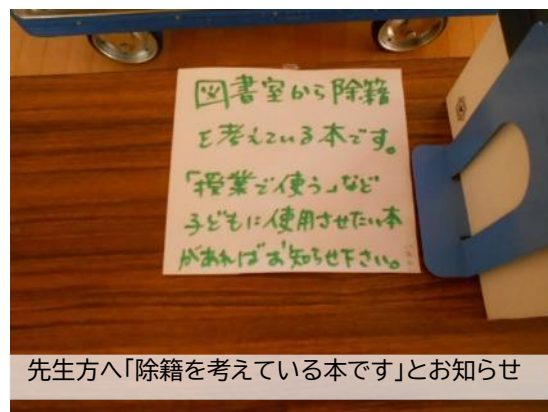 図書室から除籍
を考えている本です。
「授業で使う」など
子どもに使用させたい本
があればお知らせ下さい。
先生方へ「除籍を考えている本です」とお知らせ